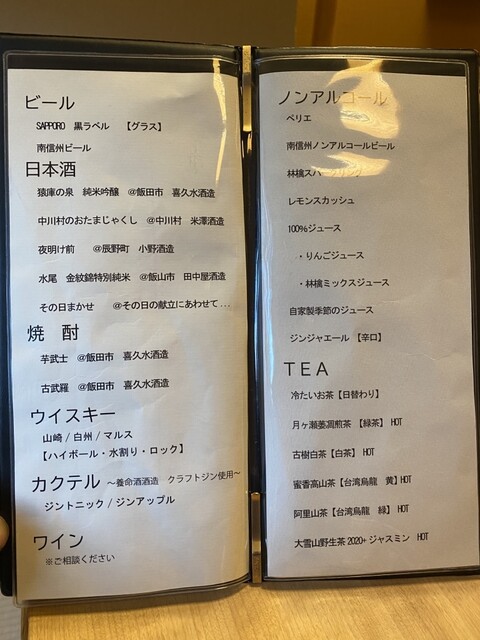 ビール
SAPPORO 黒ラベル 【グラス】
南信州ビール
日本酒
猿庫の泉 純米吟醸 @飯田市 喜久水酒造
中川村のおたまじゃくし @中川村 米澤酒造
夜明け前 @辰野町 小野酒造
水尾 金紋錦特別純米 @飯山市 田中屋酒造
その日まかせ @その日の献立にあわせて...
焼 酎
芋武士 @飯田市 喜久水酒造
古武羅 @飯田市 喜久水酒造
ウイスキー
山崎/白州/マルス
【ハイボール・水割り・ロック】
カクテル ～養命酒酒造 クラフトジン使用～
ジントニック/ジンアップル
ワイン
※ご相談ください
ノンアルコール
ペリエ
南信州ノンアルコールビール
林檎スパークリング
レモンスカッシュ
100%ジュース
・りんごジュース
・林檎ミックスジュース
自家製季節のジュース
ジンジャエール 【辛口】
TEA
冷たいお茶【日替わり】
月ヶ瀬萎凋煎茶 【緑茶】 HOT
古樹白茶【白茶】 HOT
蜜香高山茶【台湾烏龍 黄】HOT
阿里山茶【台湾烏龍 緑】 HOT
大雪山野生茶 2020+ジャスミン HOT